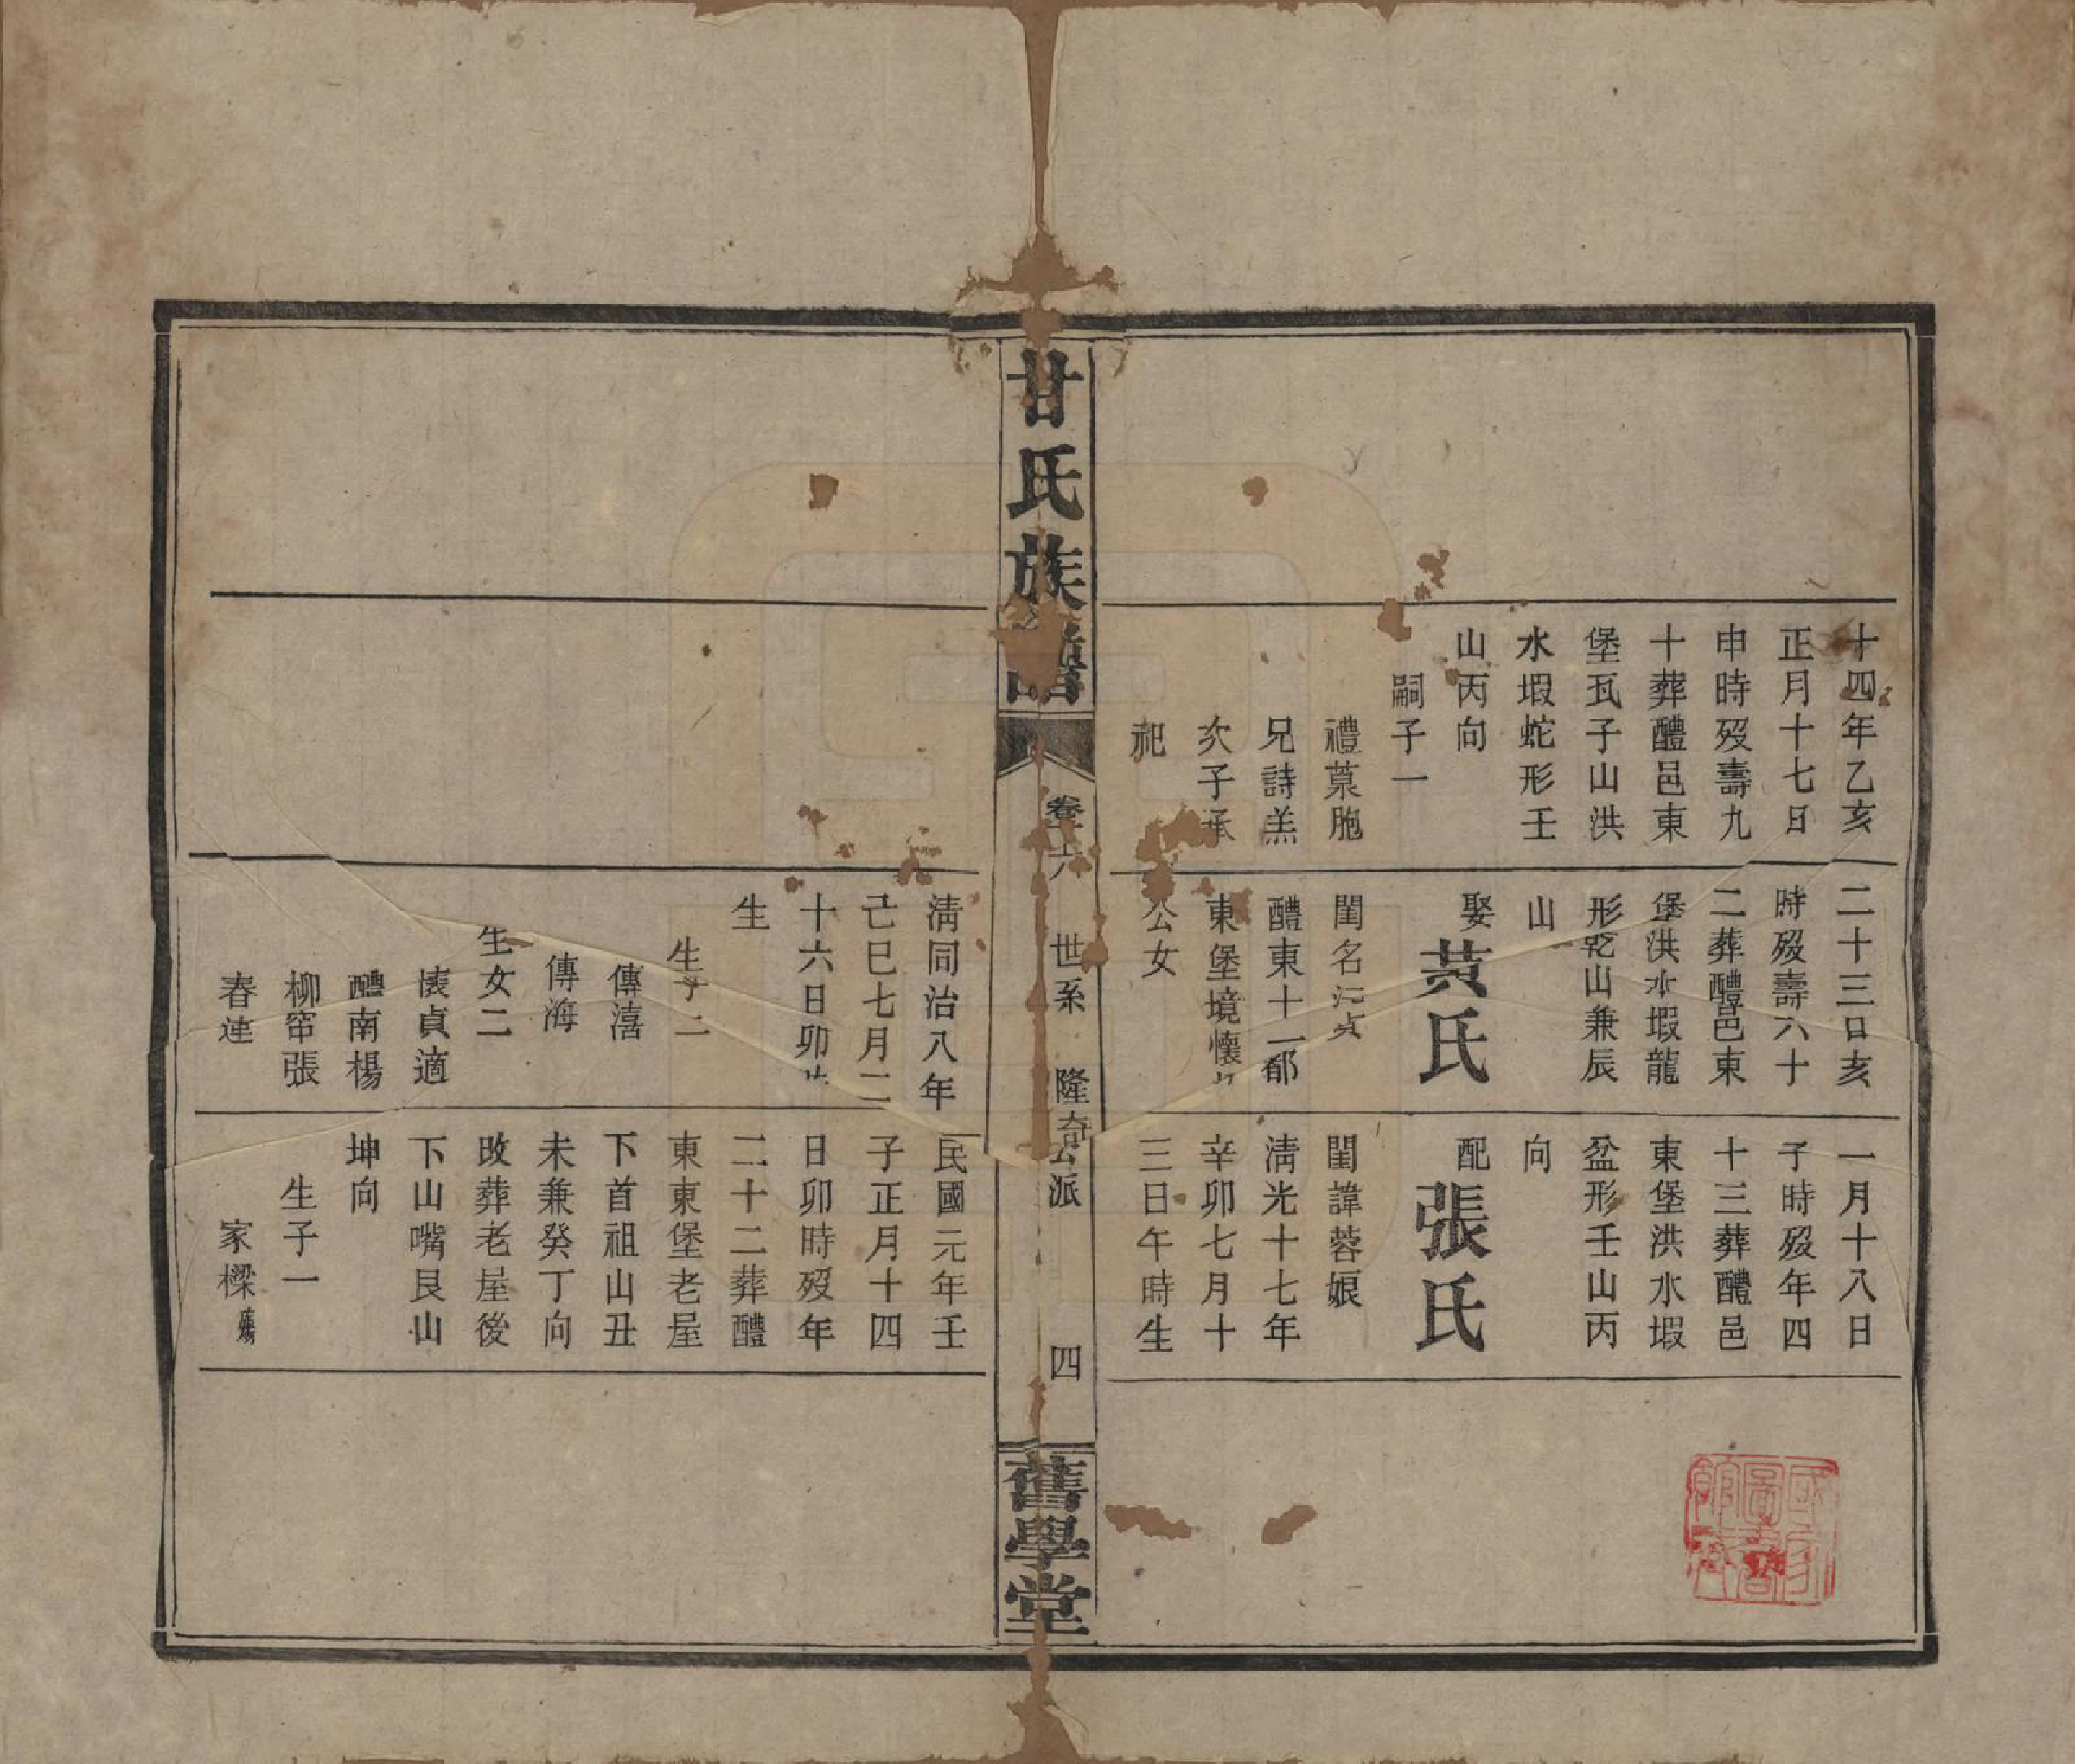 十四年乙亥
正月十七日
申時歿壽九
十葬醴邑東
堡瓦子山洪
水塅蛇形壬
山丙向
嗣子一
禮菒胞
兄詩羔
次子承
祀
二十三日亥
時歿壽六十
二葬醴邑東
堡洪水塅龍
形乾山兼辰
山
娶
黃氏
閨名沅貞
醴東十一都
東堡境懷
公女
一月十八日
子時歿年四
十三葬醴邑
東堡洪水塅
盆形壬山丙
向
配
張氏
閨諱蓉娘
清光十七年
辛卯七月十
三日午時生
甘氏族譜
卷六
世系
隆奇公派
四
舊學堂
清同治八年
己巳七月二
十六日卯時
生
生子二
傳禧
傳海
生女二
懷貞適
醴南楊
柳帘張
春連
民國元年壬
子正月十四
日卯時歿年
二十二葬醴
東東堡老屋
下首祖山丑
未兼癸丁向
改葬老屋後
下山嘴艮山
坤向
生子一
家樑
國家圖書館藏書